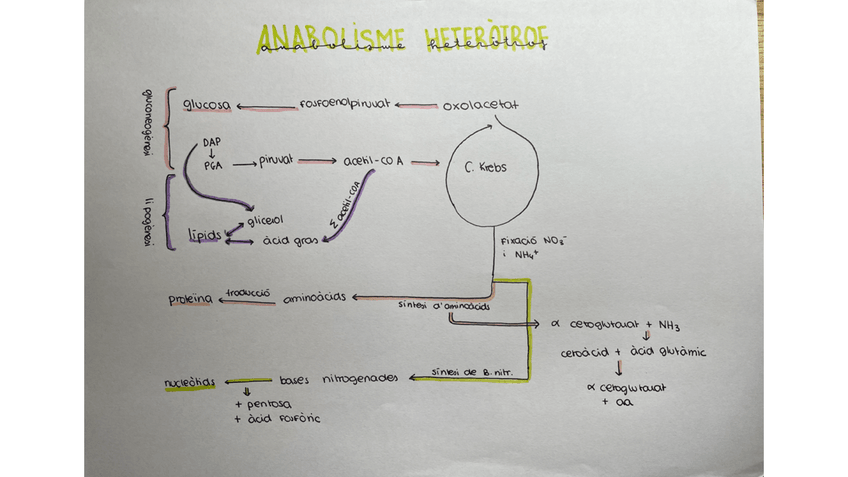 ANABOLISME HETERÒTROF
anabolisme heteròtrof
gluconeogènesi
glucosa
fosfoenolpiruvat
oxolacetat
DAP
PGA
piruvat
acetil-COA
C. Krebs
lipogènesi
glicerol
lípids
àcid gras
Σ acetil-COA
Fixació NO₃⁻
i NH₄⁺
proteïna
traducció
aminoàcids
síntesi d'aminoàcids
α ceroglutarat + NH₃
ceroàcid + àcid glutàmic
α ceroglutarat
+ aa
nucleòtids
bases nitrogenades
síntesi de B. nitr.
+ pentosa
+ àcid fosfòric